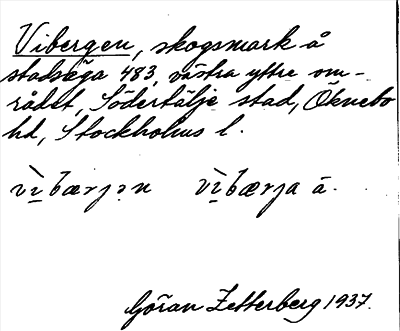 Vibergen, skogsmark å
stadsäga 483, västra yttre om-
rådet, Södertälje stad, Öknebo
hd, Stockholms l.
vìbærjən vìbærja ä.
Göran Zetterberg 1937.